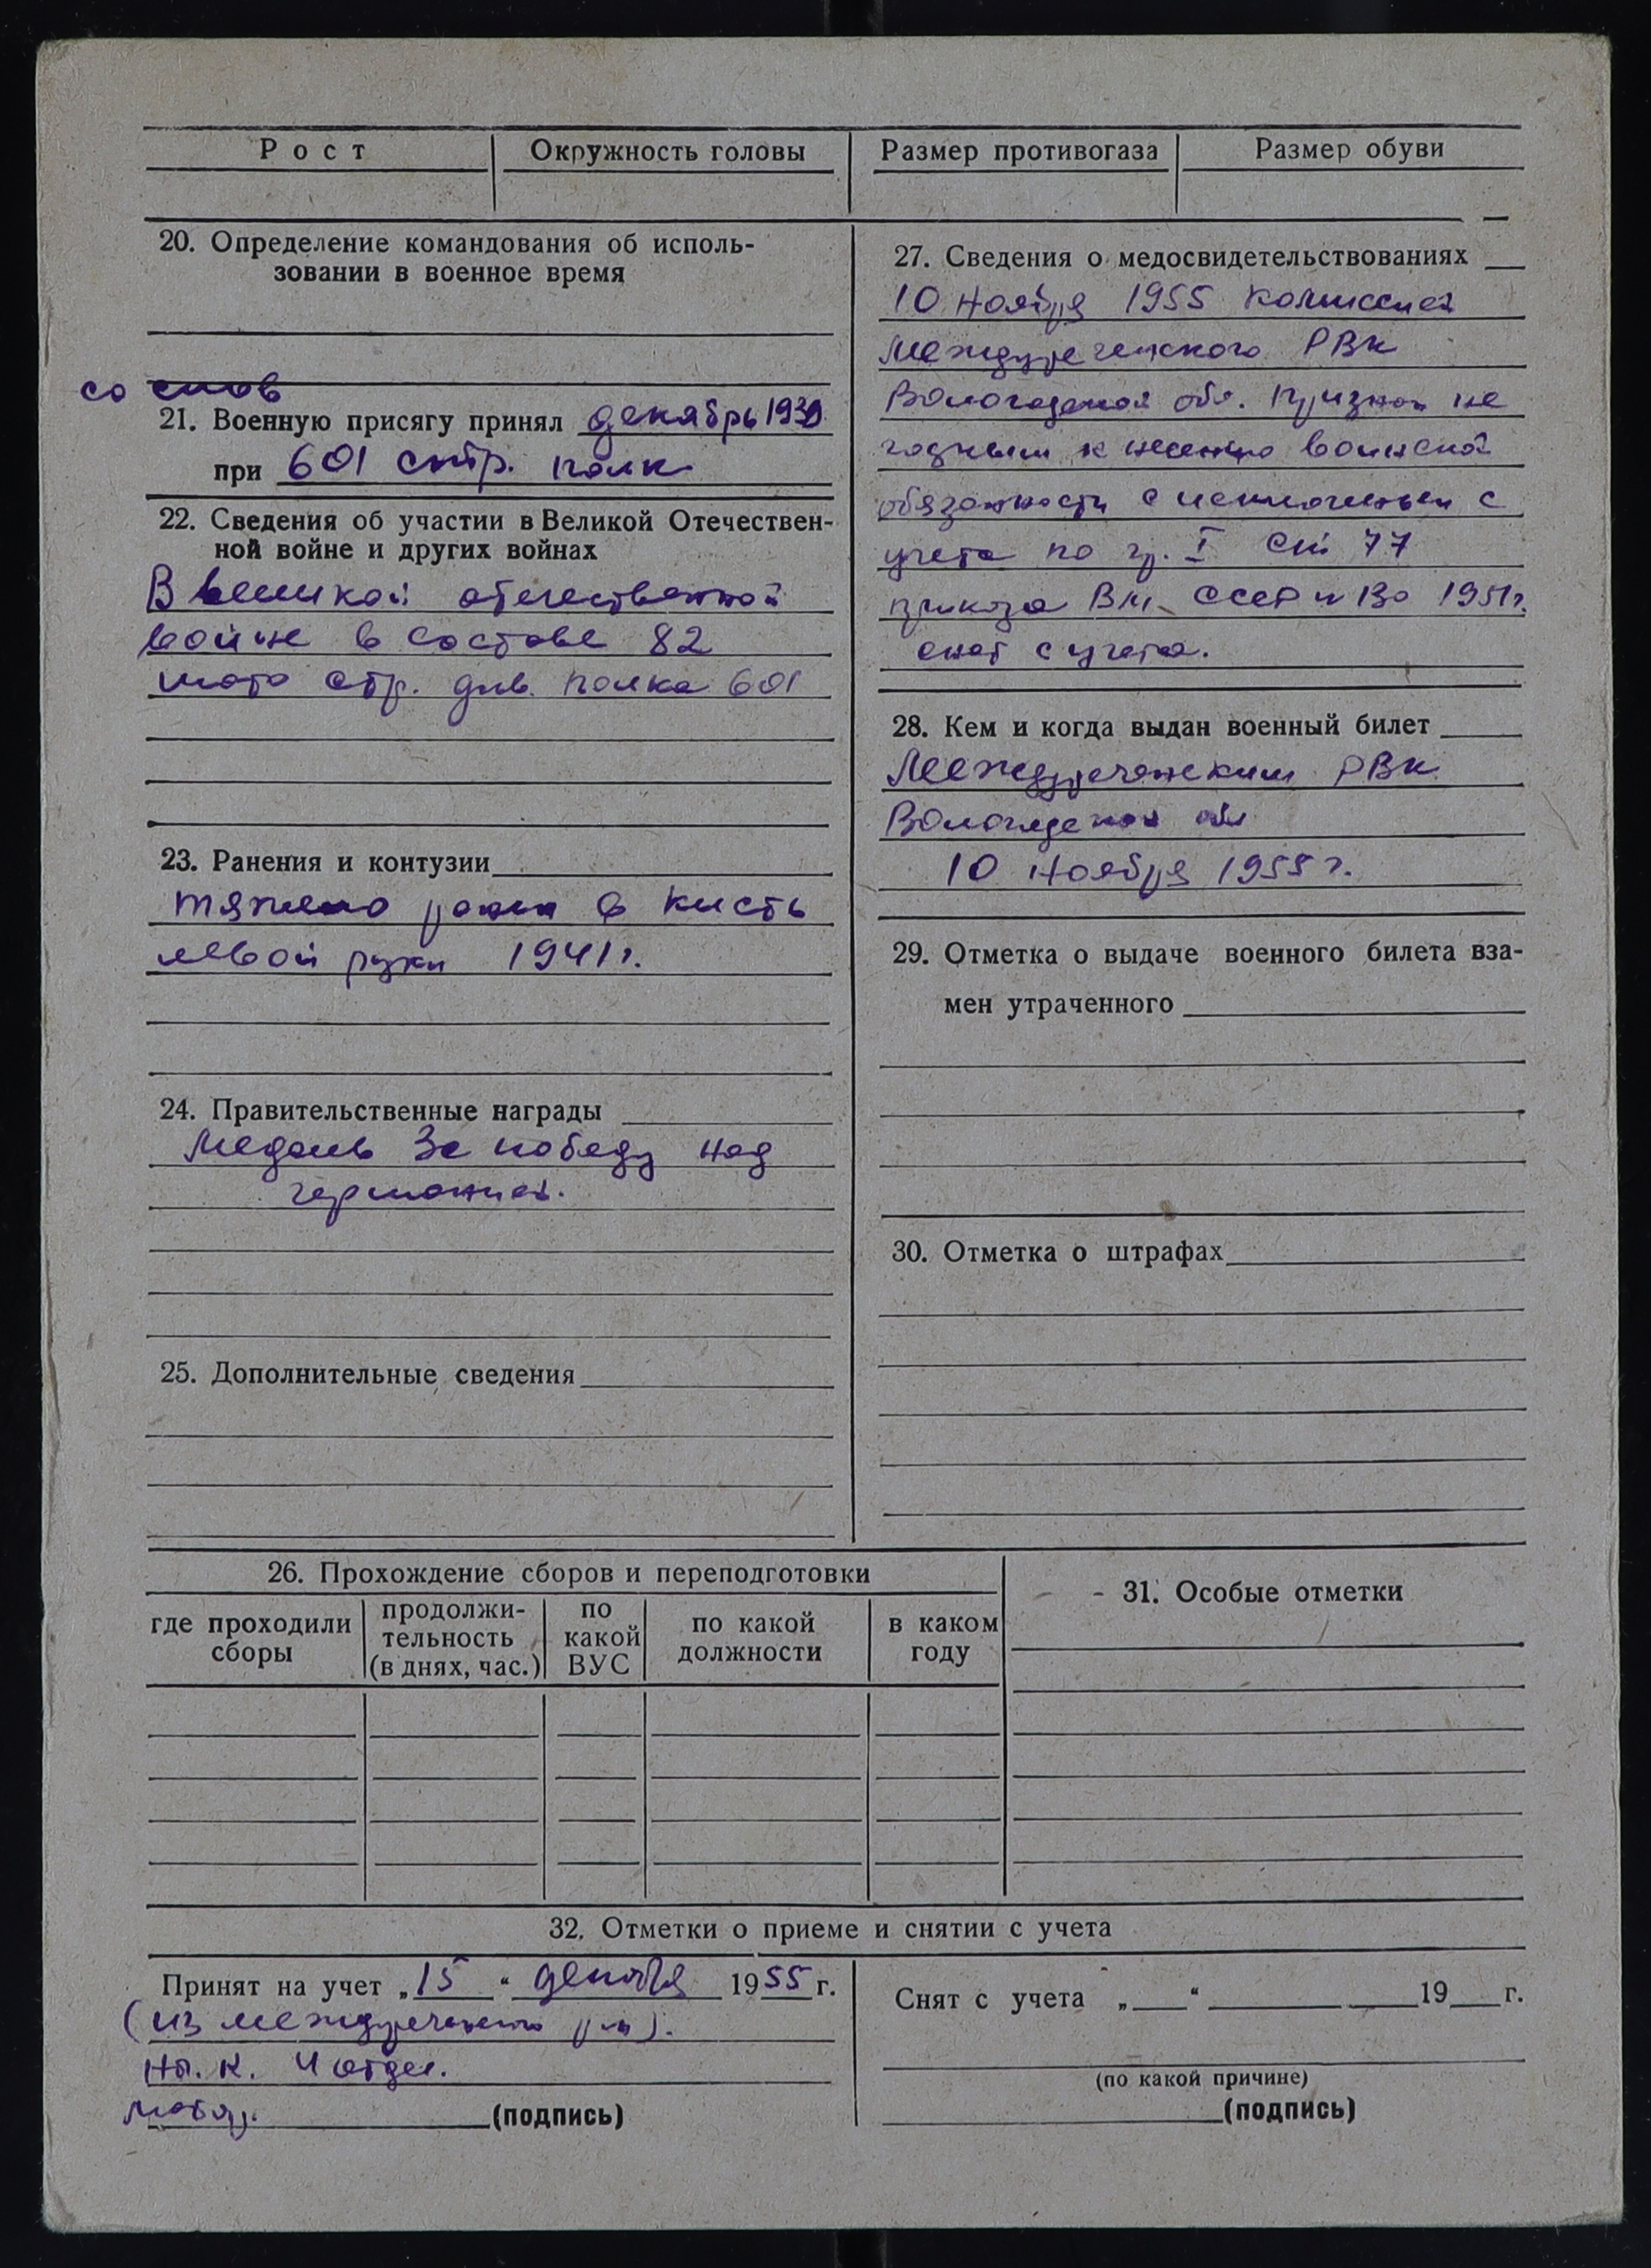 Рост Окружность головы Размер противогаза Размер обуви
20. Определение командования об исполь-
зовании в военное время
со слов
21. Военную присягу принял декабрь 1939
при 601 стр. полк
22. Сведения об участии в Великой Отечествен-
ной войне и других войнах
В великой отечественной
войне в составе 82
мото стр. див. полка 601
23. Ранения и контузии
тяжело ранен в кисть
левой руки 1941 г.
24. Правительственные награды
Медаль За победу над
германией.
25. Дополнительные сведения
27. Сведения о медосвидетельствованиях
10 ноября 1955 комиссией
Междуреченского РВК
Вологодской обл. признан не
годным к несению воинской
обязанности с исключеньем с
учета по гр. I ст 77
приказа ВМ СССР 130 1951г.
снят с учета.
28. Кем и когда выдан военный билет
Междуреченским РВК
Вологодской обл
10 ноября 1955 г.
29. Отметка о выдаче военного билета вза-
мен утраченного
30. Отметка о штрафах
26. Прохождение сборов и переподготовки
где проходили сборы продолжи-тельность (в днях, час.) по какой ВУС по какой должности в каком году
31. Особые отметки
32. Отметки о приеме и снятии с учета
Принят на учет „15“ декабря 1955 г.
(из междуреченского р-на).
4 отдел.
(подпись)
Снят с учета „ “ 19 г.
(по какой причине)
(подпись)